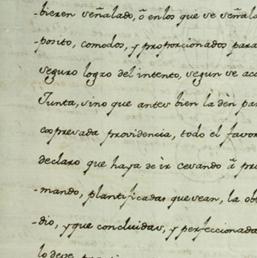 bieren señalado, ò en los que se señala
-posito, comodos, y proporcionados para
seguro logro del intento, segun se ac
Junta, sino que antes bien la dèn pa
expresada providencia, todo el favor
declaro que haya de ir cevando à pr
-mando, plantificadas que sean, la ob
dio, y que concluidas, y perfeccionada
lo deve